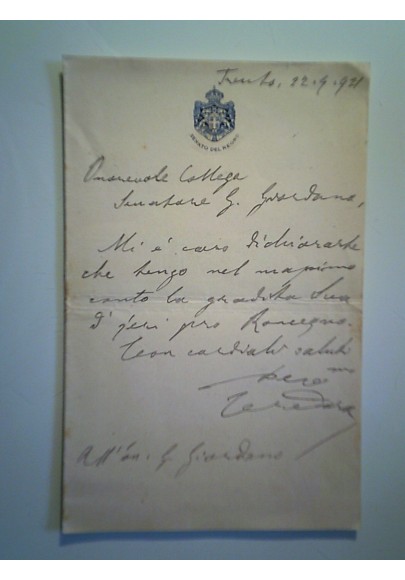 Trento, 22.9.921
SENATO DEL REGNO
Onorevole Collega
Senatore G. Giordano,
Mi è caro dichiararle
che tengo nel massimo
conto la gradita Sua
d'jeri pro Roncegno.
Con cordiali saluti
All'on. G. Giordano